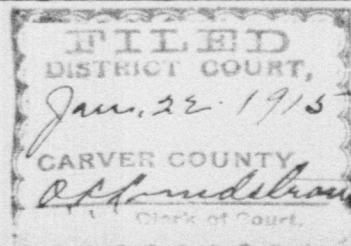 FILED
DISTRICT COURT,
Jan. 22. 1915
CARVER COUNTY
Clerk of Court.